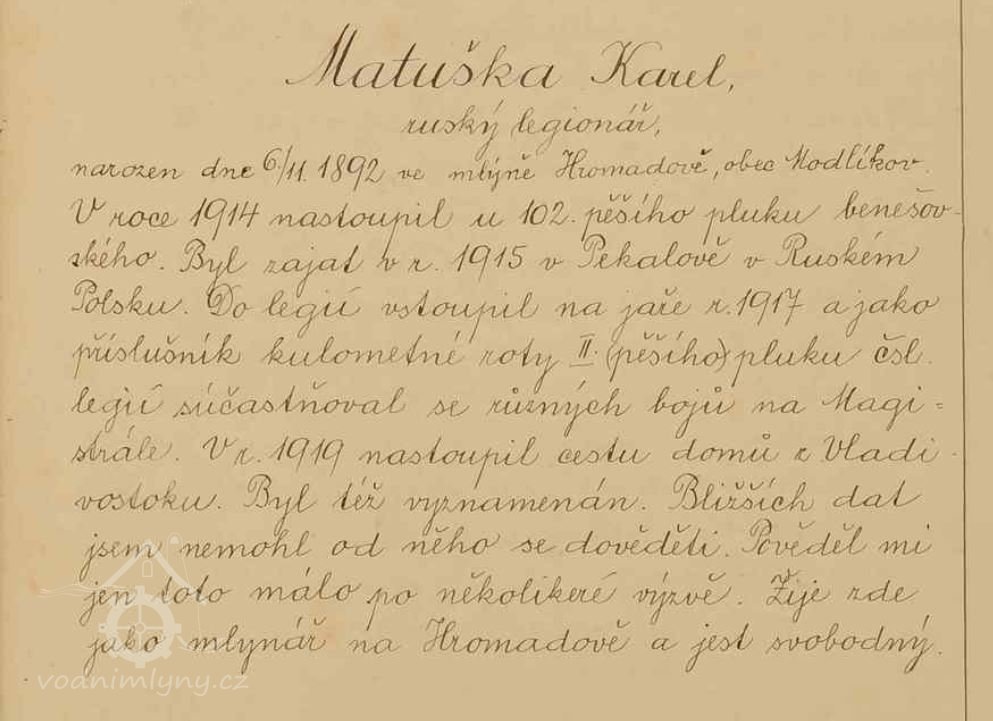 Matuška Karel,
ruský legionář,
narozen dne 6./11. 1892 ve mlýně Hromadově, obec Modlíkov.
V roce 1914 nastoupil u 102. pěšího pluku benešov-
ského. Byl zajat v r. 1915 v Pekalově v Ruském
Polsku. Do legií vstoupil na jaře r. 1917 a jako
příslušník kulometné roty II. (pěšího) pluku čsl.
legií súčastňoval se různých bojů na Magi=
strále. V r. 1919 nastoupil cestu domů z Vladi-
vostoku. Byl též vyznamenán. Bližších dat
jsem nemohl od něho se dověděti. Pověděl mi
jen toto málo po několikeré výzvě. Žije zde
jako mlynář na Hromadově a jest svobodný.
vodnimlyny.cz